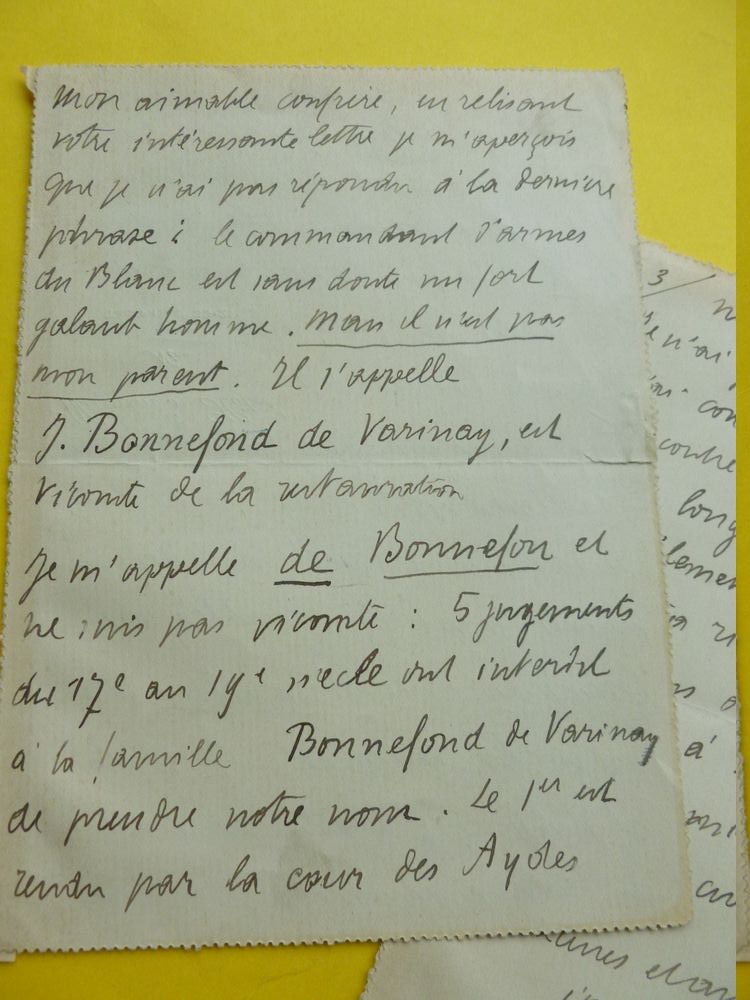 Mon aimable confrère, en relisant
votre intéressante lettre je m'aperçois
que je n'ai pas répondu à la dernière
phrase : le commandant d'armes
du Blanc est sans doute un fort
galant homme. Mais il n'est pas
mon parent. Il s'appelle
J. Bonnefond de Varinay, est
vicomte de la restauration
Je m'appelle de Bonnefon et
ne suis pas vicomte : 5 jugements
du 17e au 19e siècle ont interdit
à la famille Bonnefond de Varinay
de prendre notre nom. Le 1er est
rendu par la cour des Aydes
3
n'ai
contre
long
à